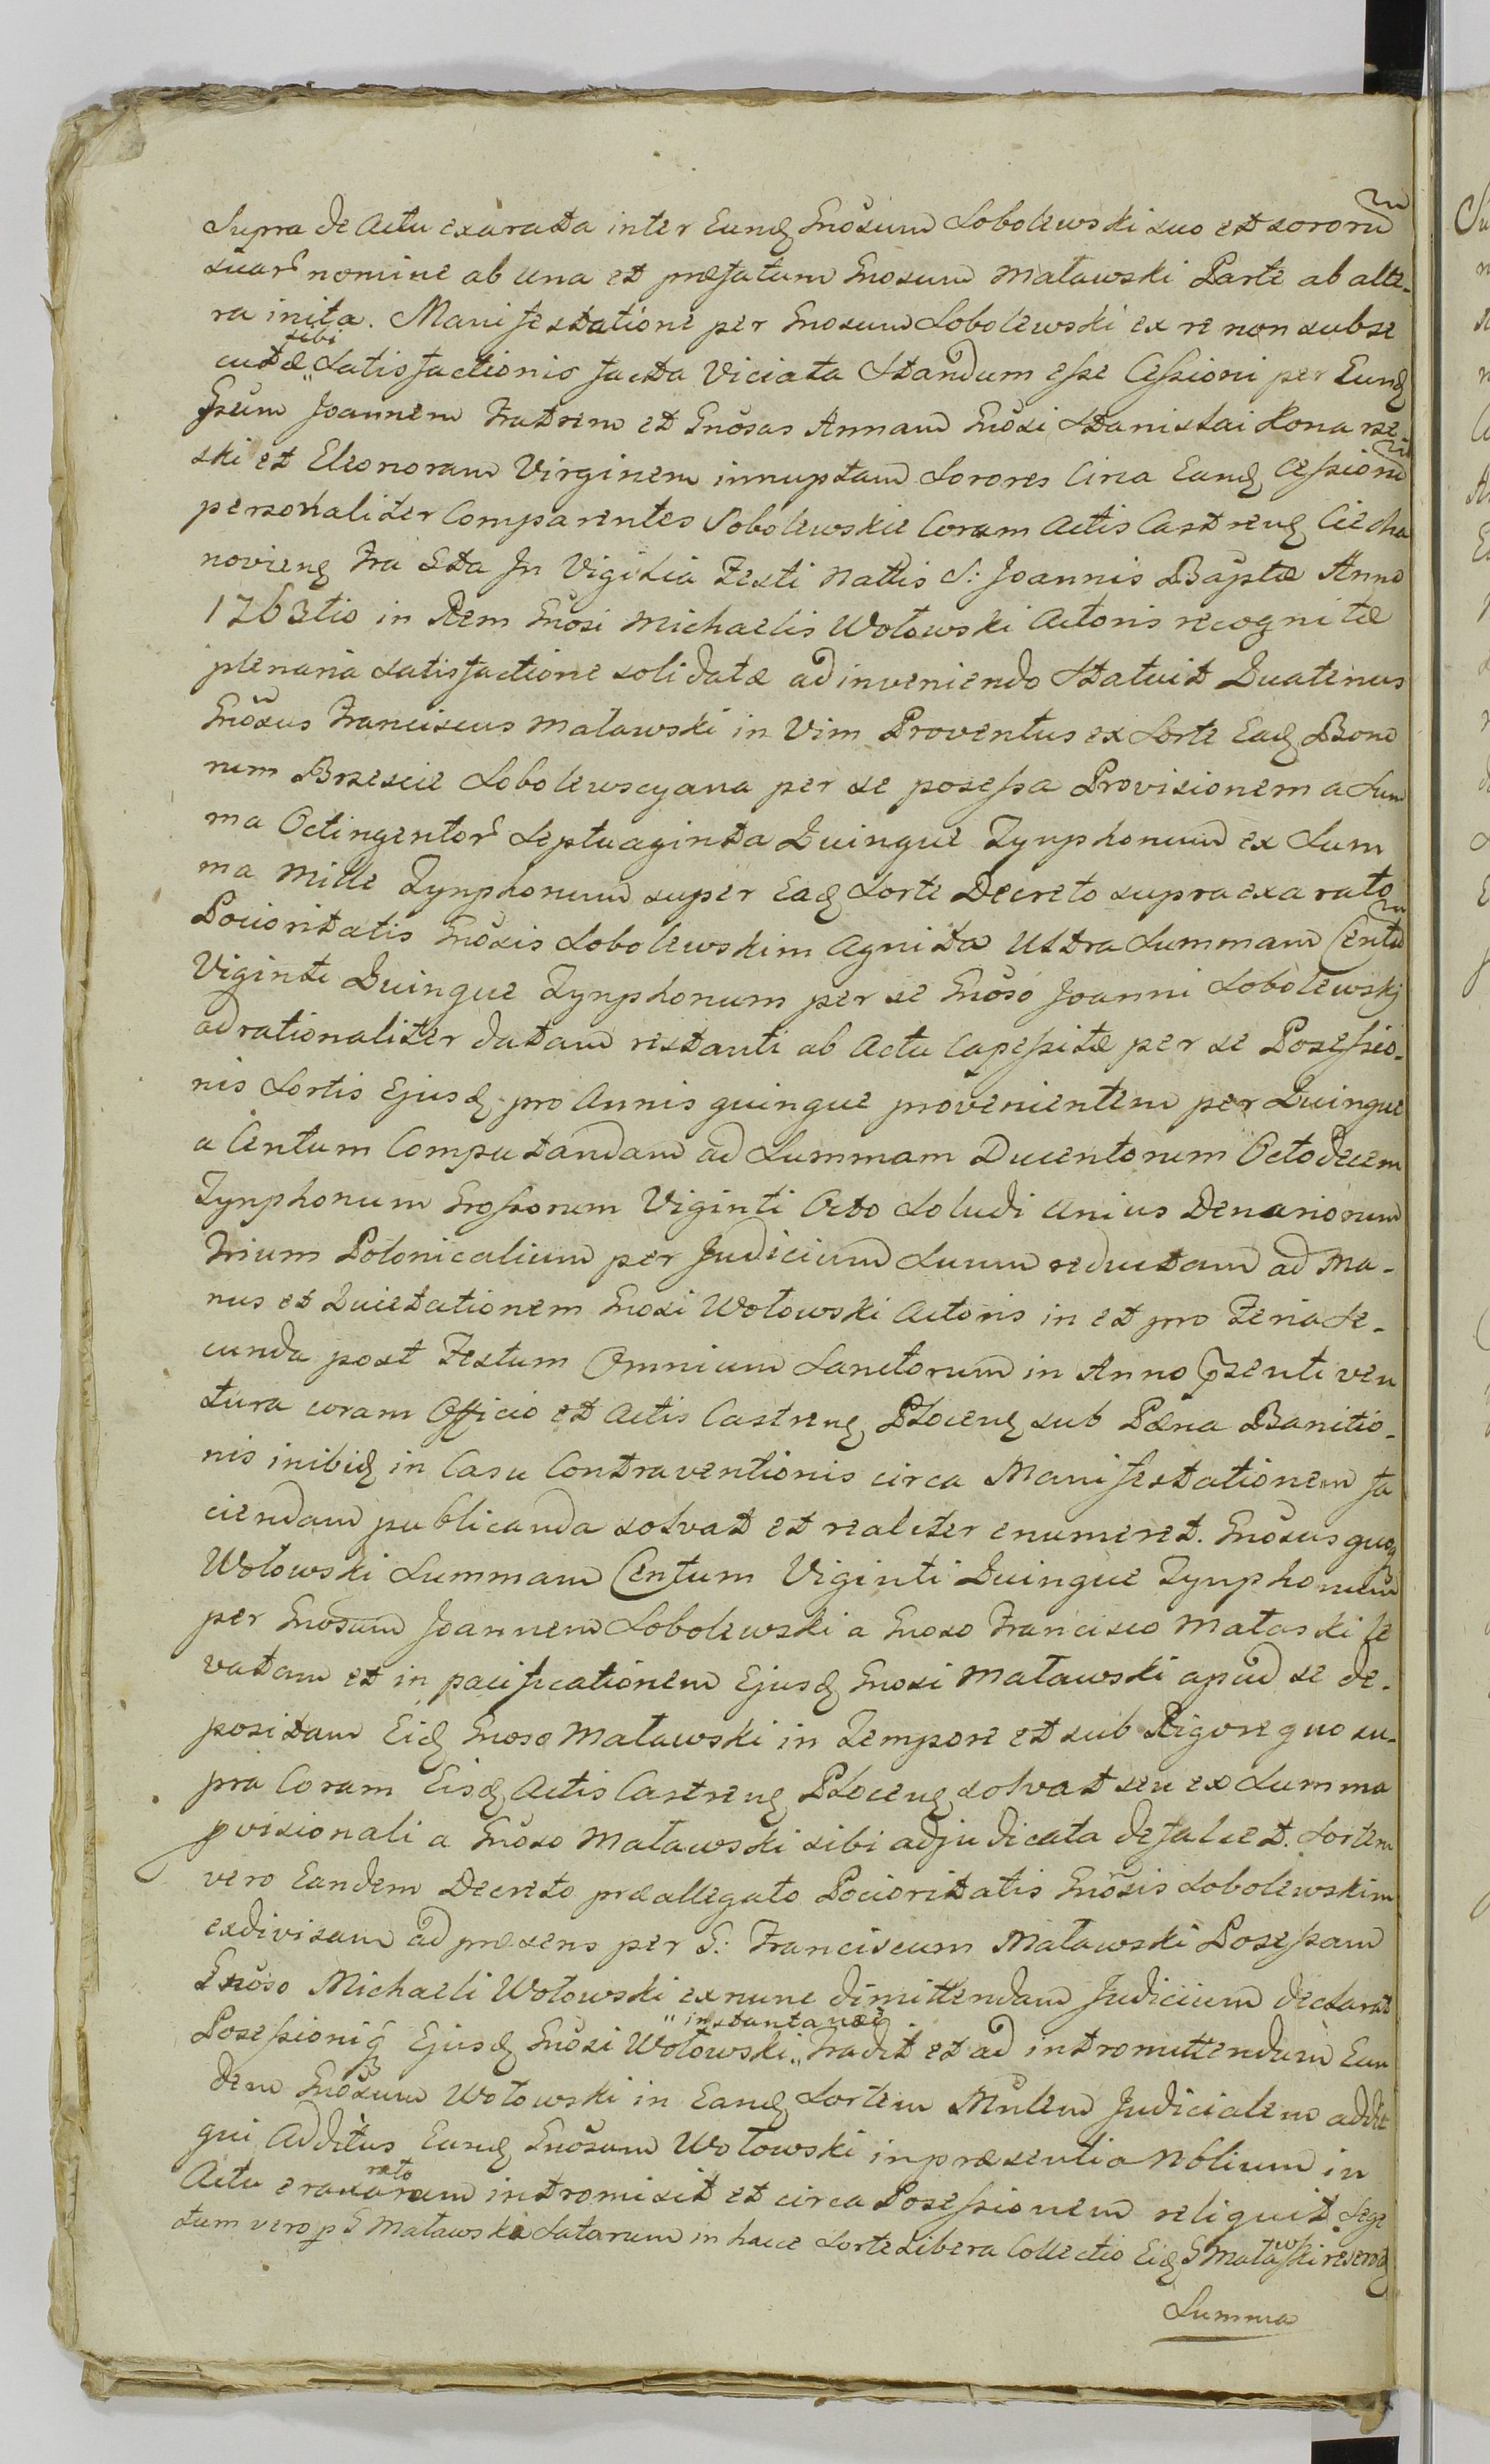 Supra de Actu exarata inter Eundẽ Gnõsum Sobolewski suo et sororũ
suarũ nomine ab una et præfatum Gnosum Matawski Parte ab alte-
ra inita. Manifestatione per Gnosum Sobolewski ex re non subse
cutæ sibi Satisfactionis facta Viciata Standum esse Cessioni per Eundẽ
Gsum Joannem Fratrem et Gnõsas Annam Gnõsi Stanislai Konarze
ski et Eleonoram Virginem innuptam Sorores Circa Eandẽ Cessionẽ
personaliter Comparentes Sobolewskie Coram Actis Castrenẽ Ciecha
novienẽ Fra 5ta In Vigilia Festi Nattis S: Joannis Baptæ Anno
1763tio in Rem Gnosi Michaelis Wołowski Actoris recognitæ
plenaria satisfactione solidatæ adinveniendo Statuit Quatenus
Gnõsus Franciscus Matawski in Vim Proventus ex Sorte Eadẽ Bono
rum Brzescie Sobolewscyana per se posessa Provisionem a Sum
ma Octingentorũ Septuaginta Quinque Tynphonum ex Sum
ma Mille Tynphonum super Eadẽ Sorte Decreto supra exarato
Pocioritatis Gnõsis Sobolewskim Agnita Ultra Summam Centũ
Viginti Quinque Tynphonum per se Gnõso Joanni Sobolewskj
ad rationaliter datam restanti ab Actu Capessitæ per se Posessio-
nis Sortis Ejusdẽ pro Annis quinque provenientem per Quinque
a Centum Computandam ad Summam Ducentorum Octodecem
Tynphonum Grossorum Viginti Octo Soludi Unius Denariorum
Trium Polonicalium per Judicium Suum reductam ad Ma-
nus et Quietationem Gnosi Wołowski Actoris in et pro Feria Se-
cunda post Festum Omnium Sanctorum in Anno pzenti ven
tura coram Officio et Actis Castrenẽ Plocenẽ sub Pæna Banitio-
nis inibidẽ in Casu Contraventionis circa Manifestationem fa
ciendam publicanda solvat et realiter enumeret. Gnõsus quoqз
Wołowski Summam Centum Viginti Quinque Tynphonum
per Gnosum Joannem Sobolewski a Gnoso Francisco Mataski le
vatam et in pacificationem Ejusdẽ Gnosi Matawski apud se de-
positam Eidẽ Gnoso Matawski in Tempore et sub Rigore quo su-
pra Coram Eisdẽ Actis Castrenẽ Plocenẽ solvat seu ex Summa
pvisionali a Gnõso Matawski sibi adjudicata defalcet. Sortem
vero Eandem Decreto præallegato Pocioritatis Gnõsis Sobolewskim
exdivisam ad præsens per G: Franciscum Matawski Posessam
Gnõso Michaeli Wołowski exnunc dimittendam Judicium declarat
Posessioniqз Ejusdẽ Gnõsi Wołowski „instantanee„ Tradit et ad intromittendum Eun
dem Gnõsum Wołowski in Eandẽ Sortem Mnlem Judicialem addit
qui Additus Eundẽ Gnõsum Wołowski in præsentia Nblium in
Actu exararato intromisit et circa Posessionem reliquit. Sege
tum vero p G Matawski Satarum in hacce Sorte Libera Collectio Eidẽ G Matawski reservatẽ
Summa